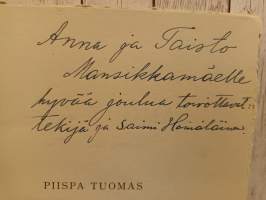 Anna ja Taisto
Mansikkamäelle
hyvää joulua toivottavat
tekijä ja Saimi Hämäläinen.
PIISPA TUOMAS